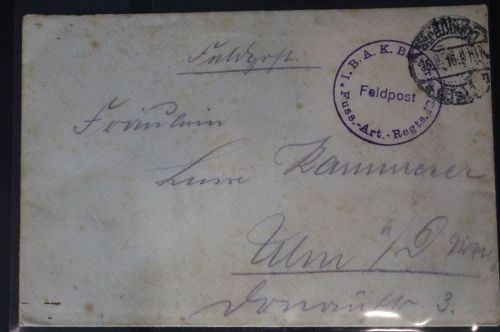 Feldpost.
* I. B. A. K. B.
Feldpost
Fuss.-Art.-Regts. 13
Fräulein
Luise Kammerer
Ulm a/D
Donaustr 3.